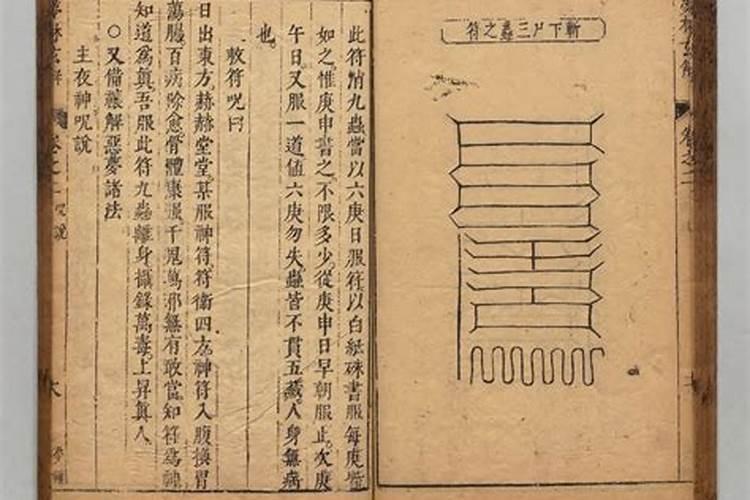 斬下尸三蟲之符
此符消九蟲當以六庚日服符以白紙硃書服每庚
如之惟庚申書之不限多少從庚申日早朝服止次庚
午日又服一道値六庚勿失蟲皆不貫五藏人身無病
也
敕符呪曰
日出東方赫赫堂堂某服神符符衛四方神符入腹換胃
腸百病除愈骨體康千鬼萬邪無有敢當知符爲神
知道爲眞吾服此符九蟲離身攝錄萬毒上昇眞人
○又備禳解惡夢諸法
主夜神呪說